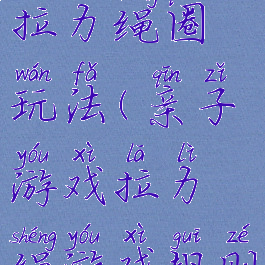 拉力绳圈
wán fǎ qīn zǐ
玩法(亲子
yóu xì lā lì
游戏拉力
shéng yóu xì guī zé
绳游戏规则